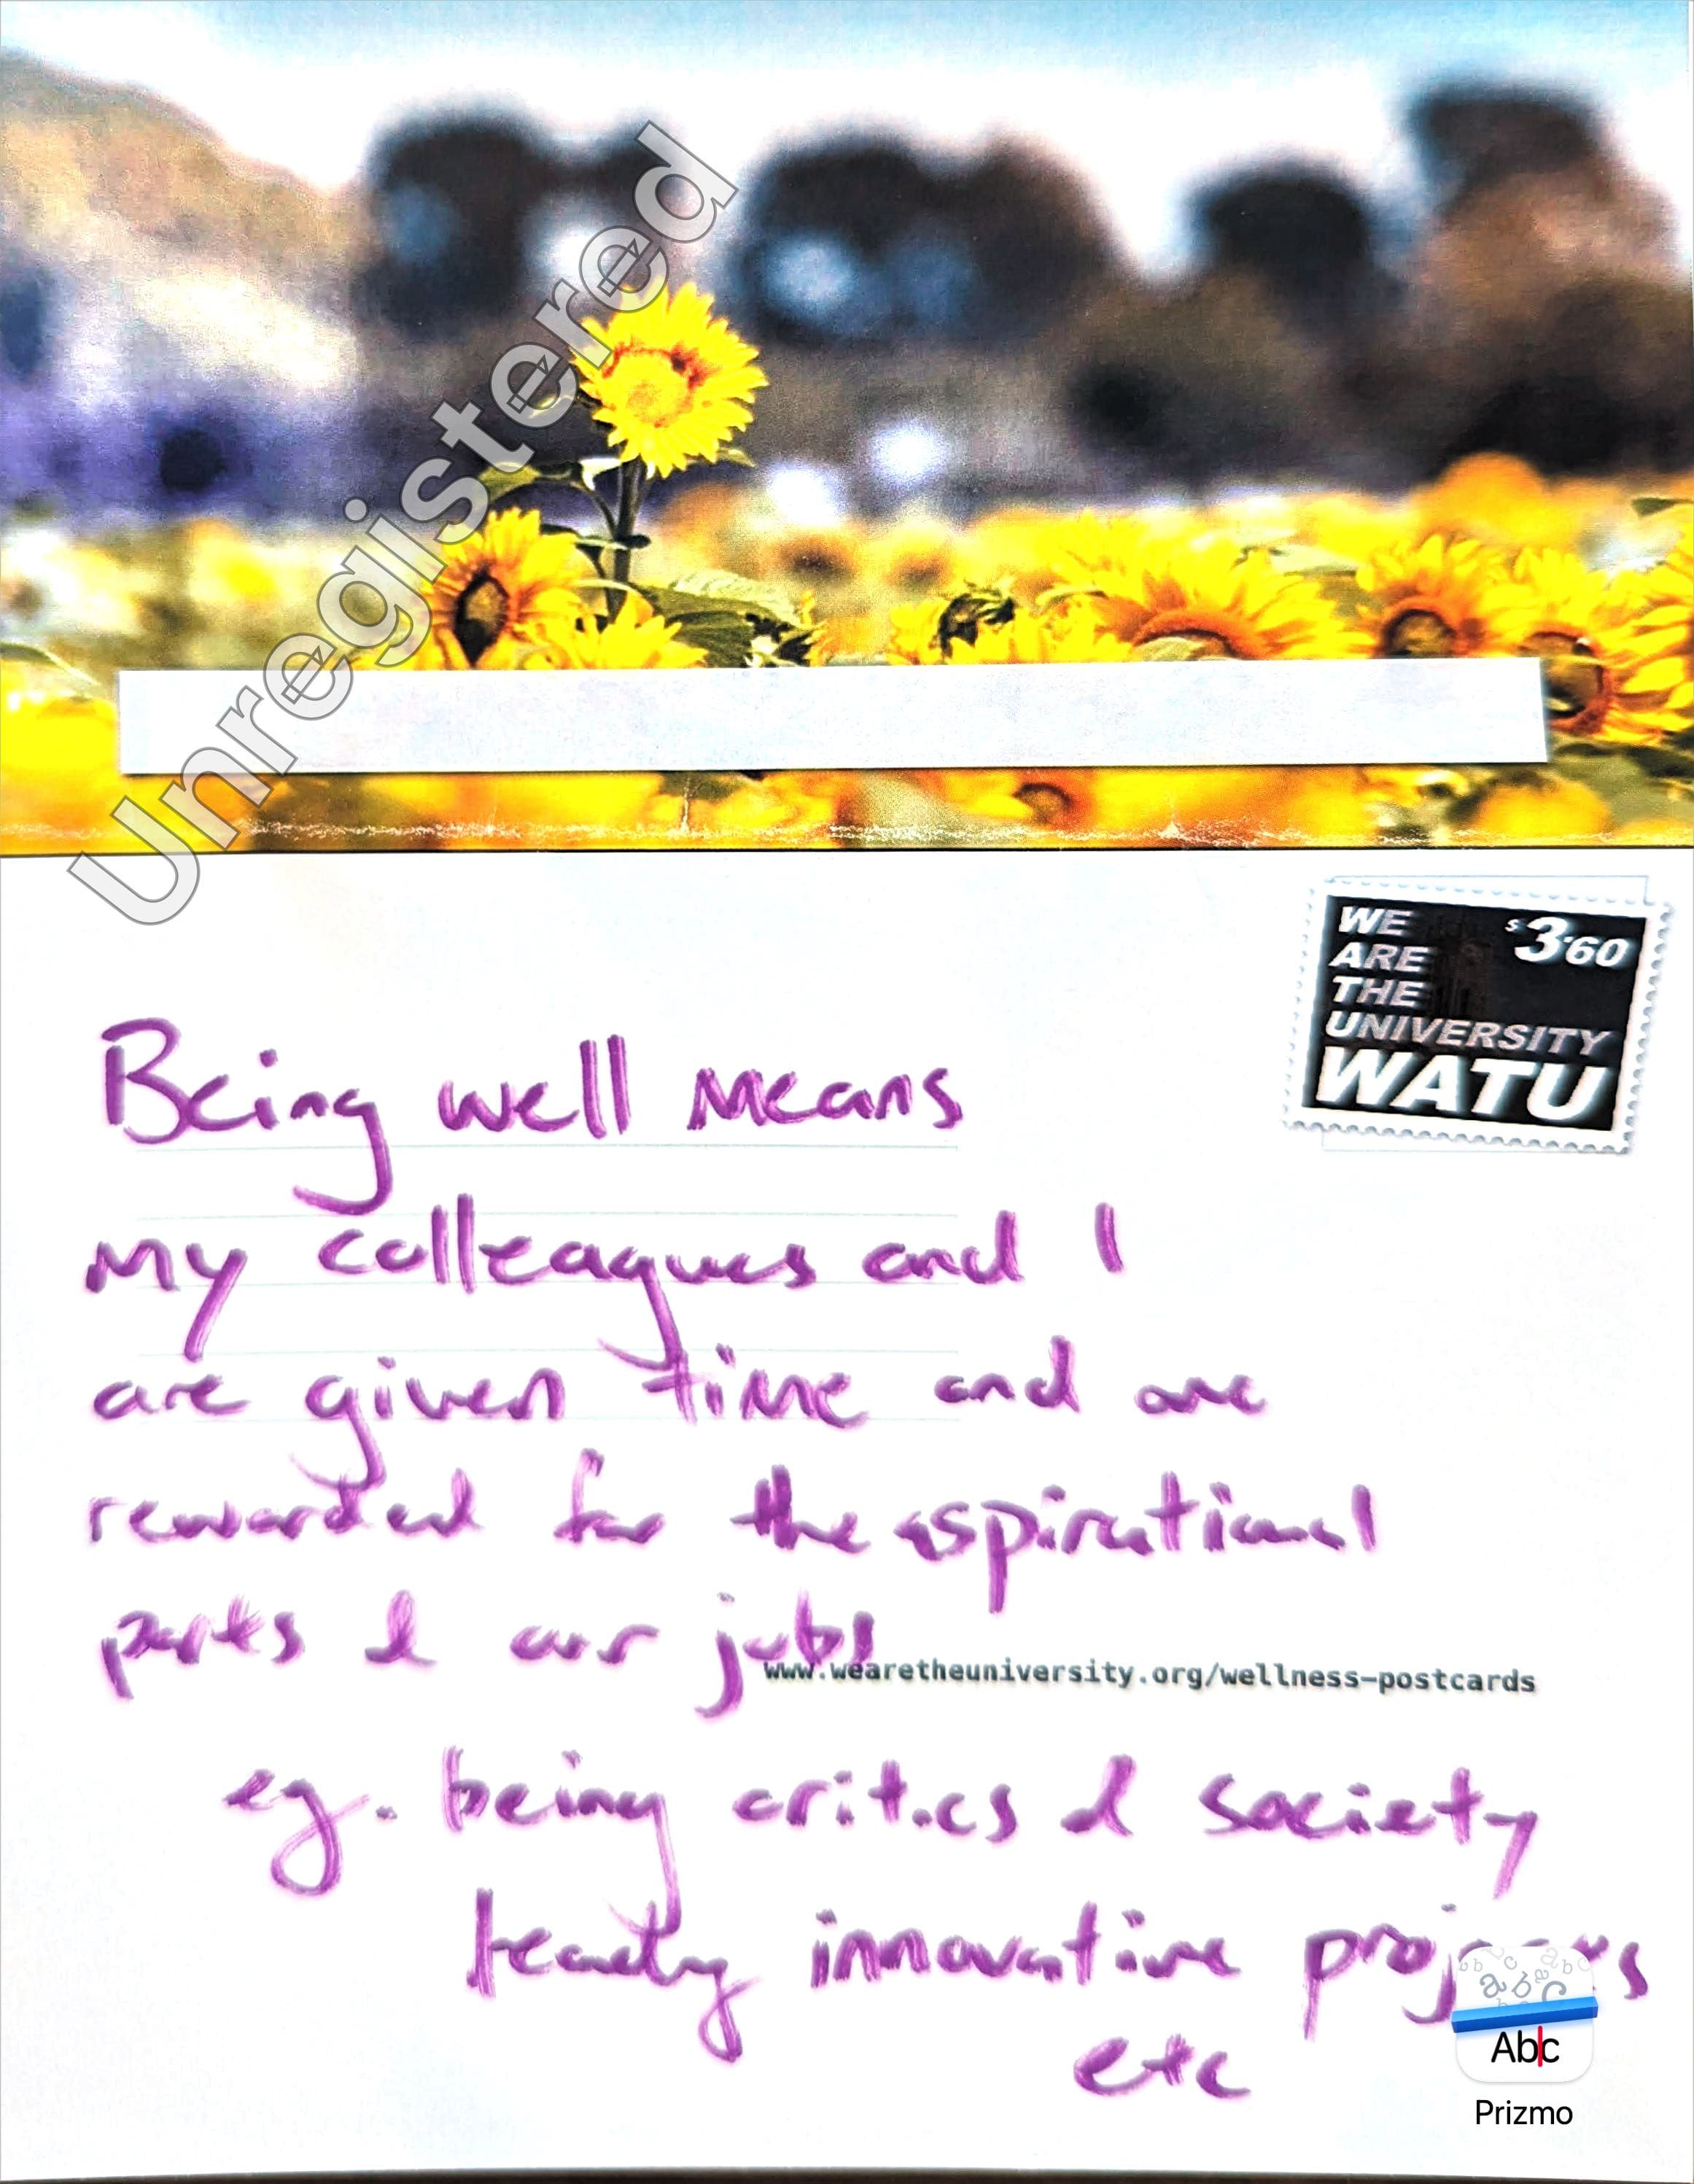 Unregistered
WE
ARE
THE
UNIVERSITY
WATU
$3.60
Being well means
my colleagues and I
are given time and are
rewarded for the aspirational
parts of our jobs
www.wearetheuniversity.org/wellness-postcards
eg. being critics of society
innovative
etc
Abc
Prizmo